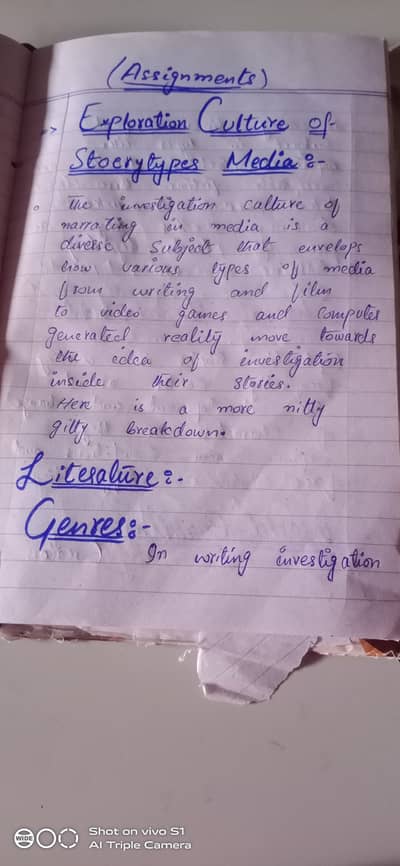 (Assignments)
=> Exploration Culture of
Stoerytypes Media:-
The investigation culture of
narrating in media is a
diverse Subject that envelops
how various types of media
from writing and film
to video games and Computer
generated reality move towards
the idea of investigation
inside their stories.
Here is a more nitty
gitty breakdown.
Literature:-
Genres:-
In writing investigation
WIDE
Shot on vivo S1
AI Triple Camera